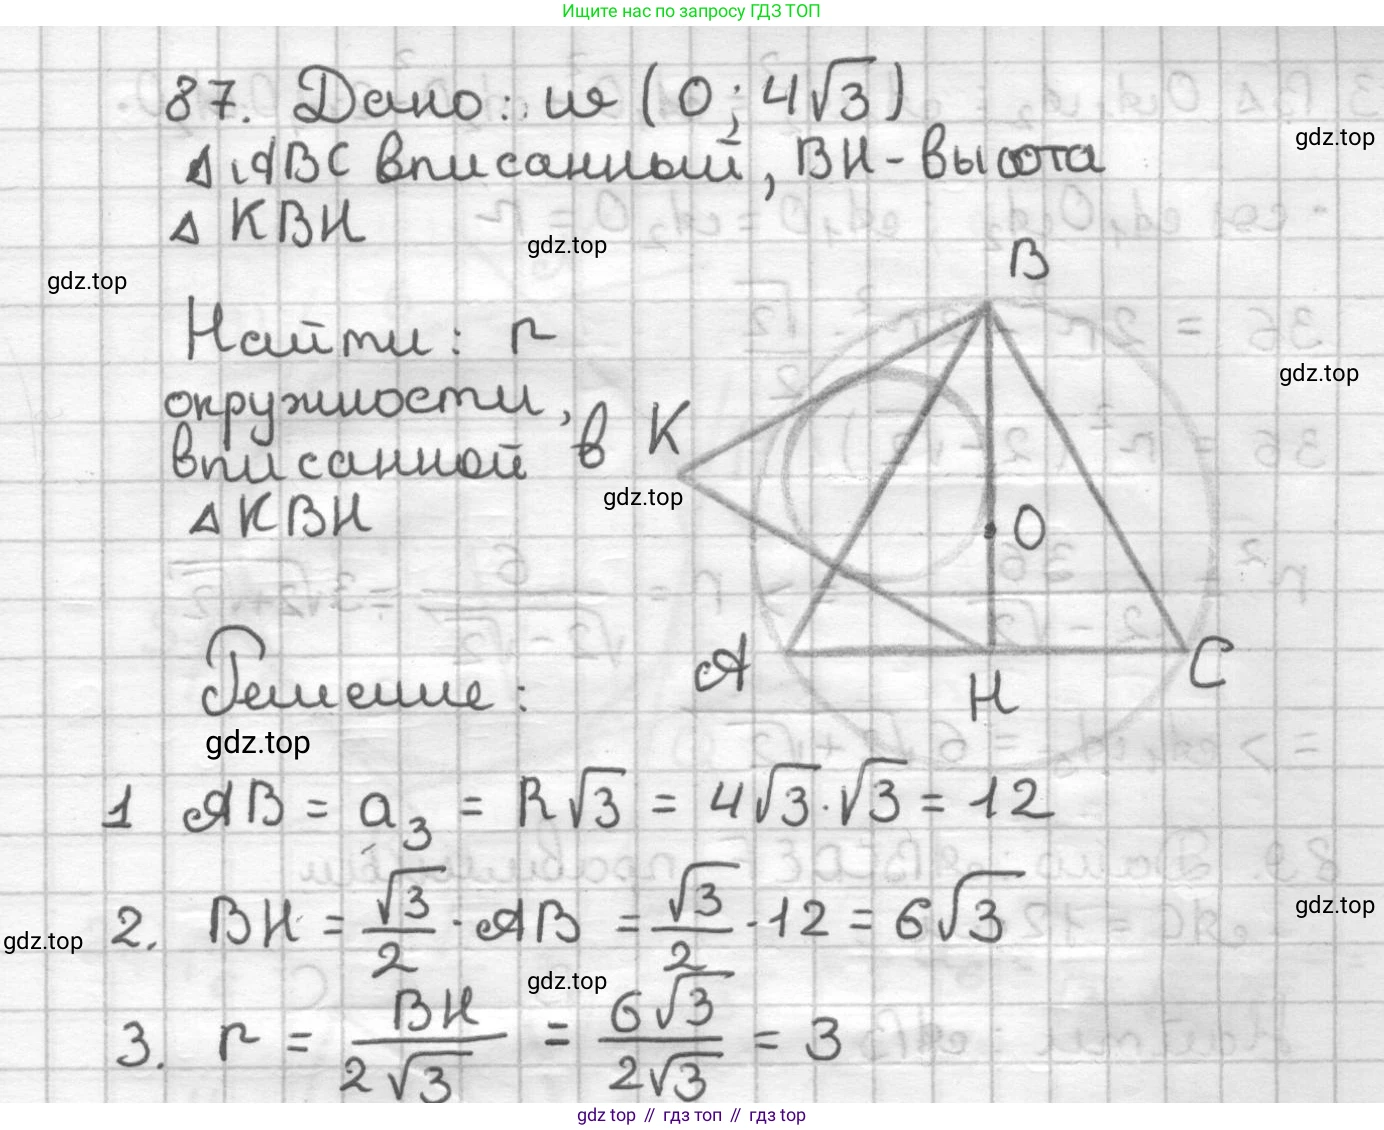 Ищите нас по запросу ГДЗ ТОП
87. Дано: w (O; 4√3)
gdz.top
△ ABC вписанный, BH - высота
△ KBH
gdz.top
B
gdz.top
Найти: r
gdz.top
окружности,
вписанной в
K
gdz.top
△ KBH
O
Решение:
A
H
C
gdz.top
1 AB = a₃ = R√3 = 4√3 · √3 = 12
2. BH = √3/2 · AB = √3/2 · 12 = 6√3
gdz.top
gdz.top
gdz.top
3. r = BH/2√3 = 6√3/2√3 = 3
gdz top // гдз топ // gdz top